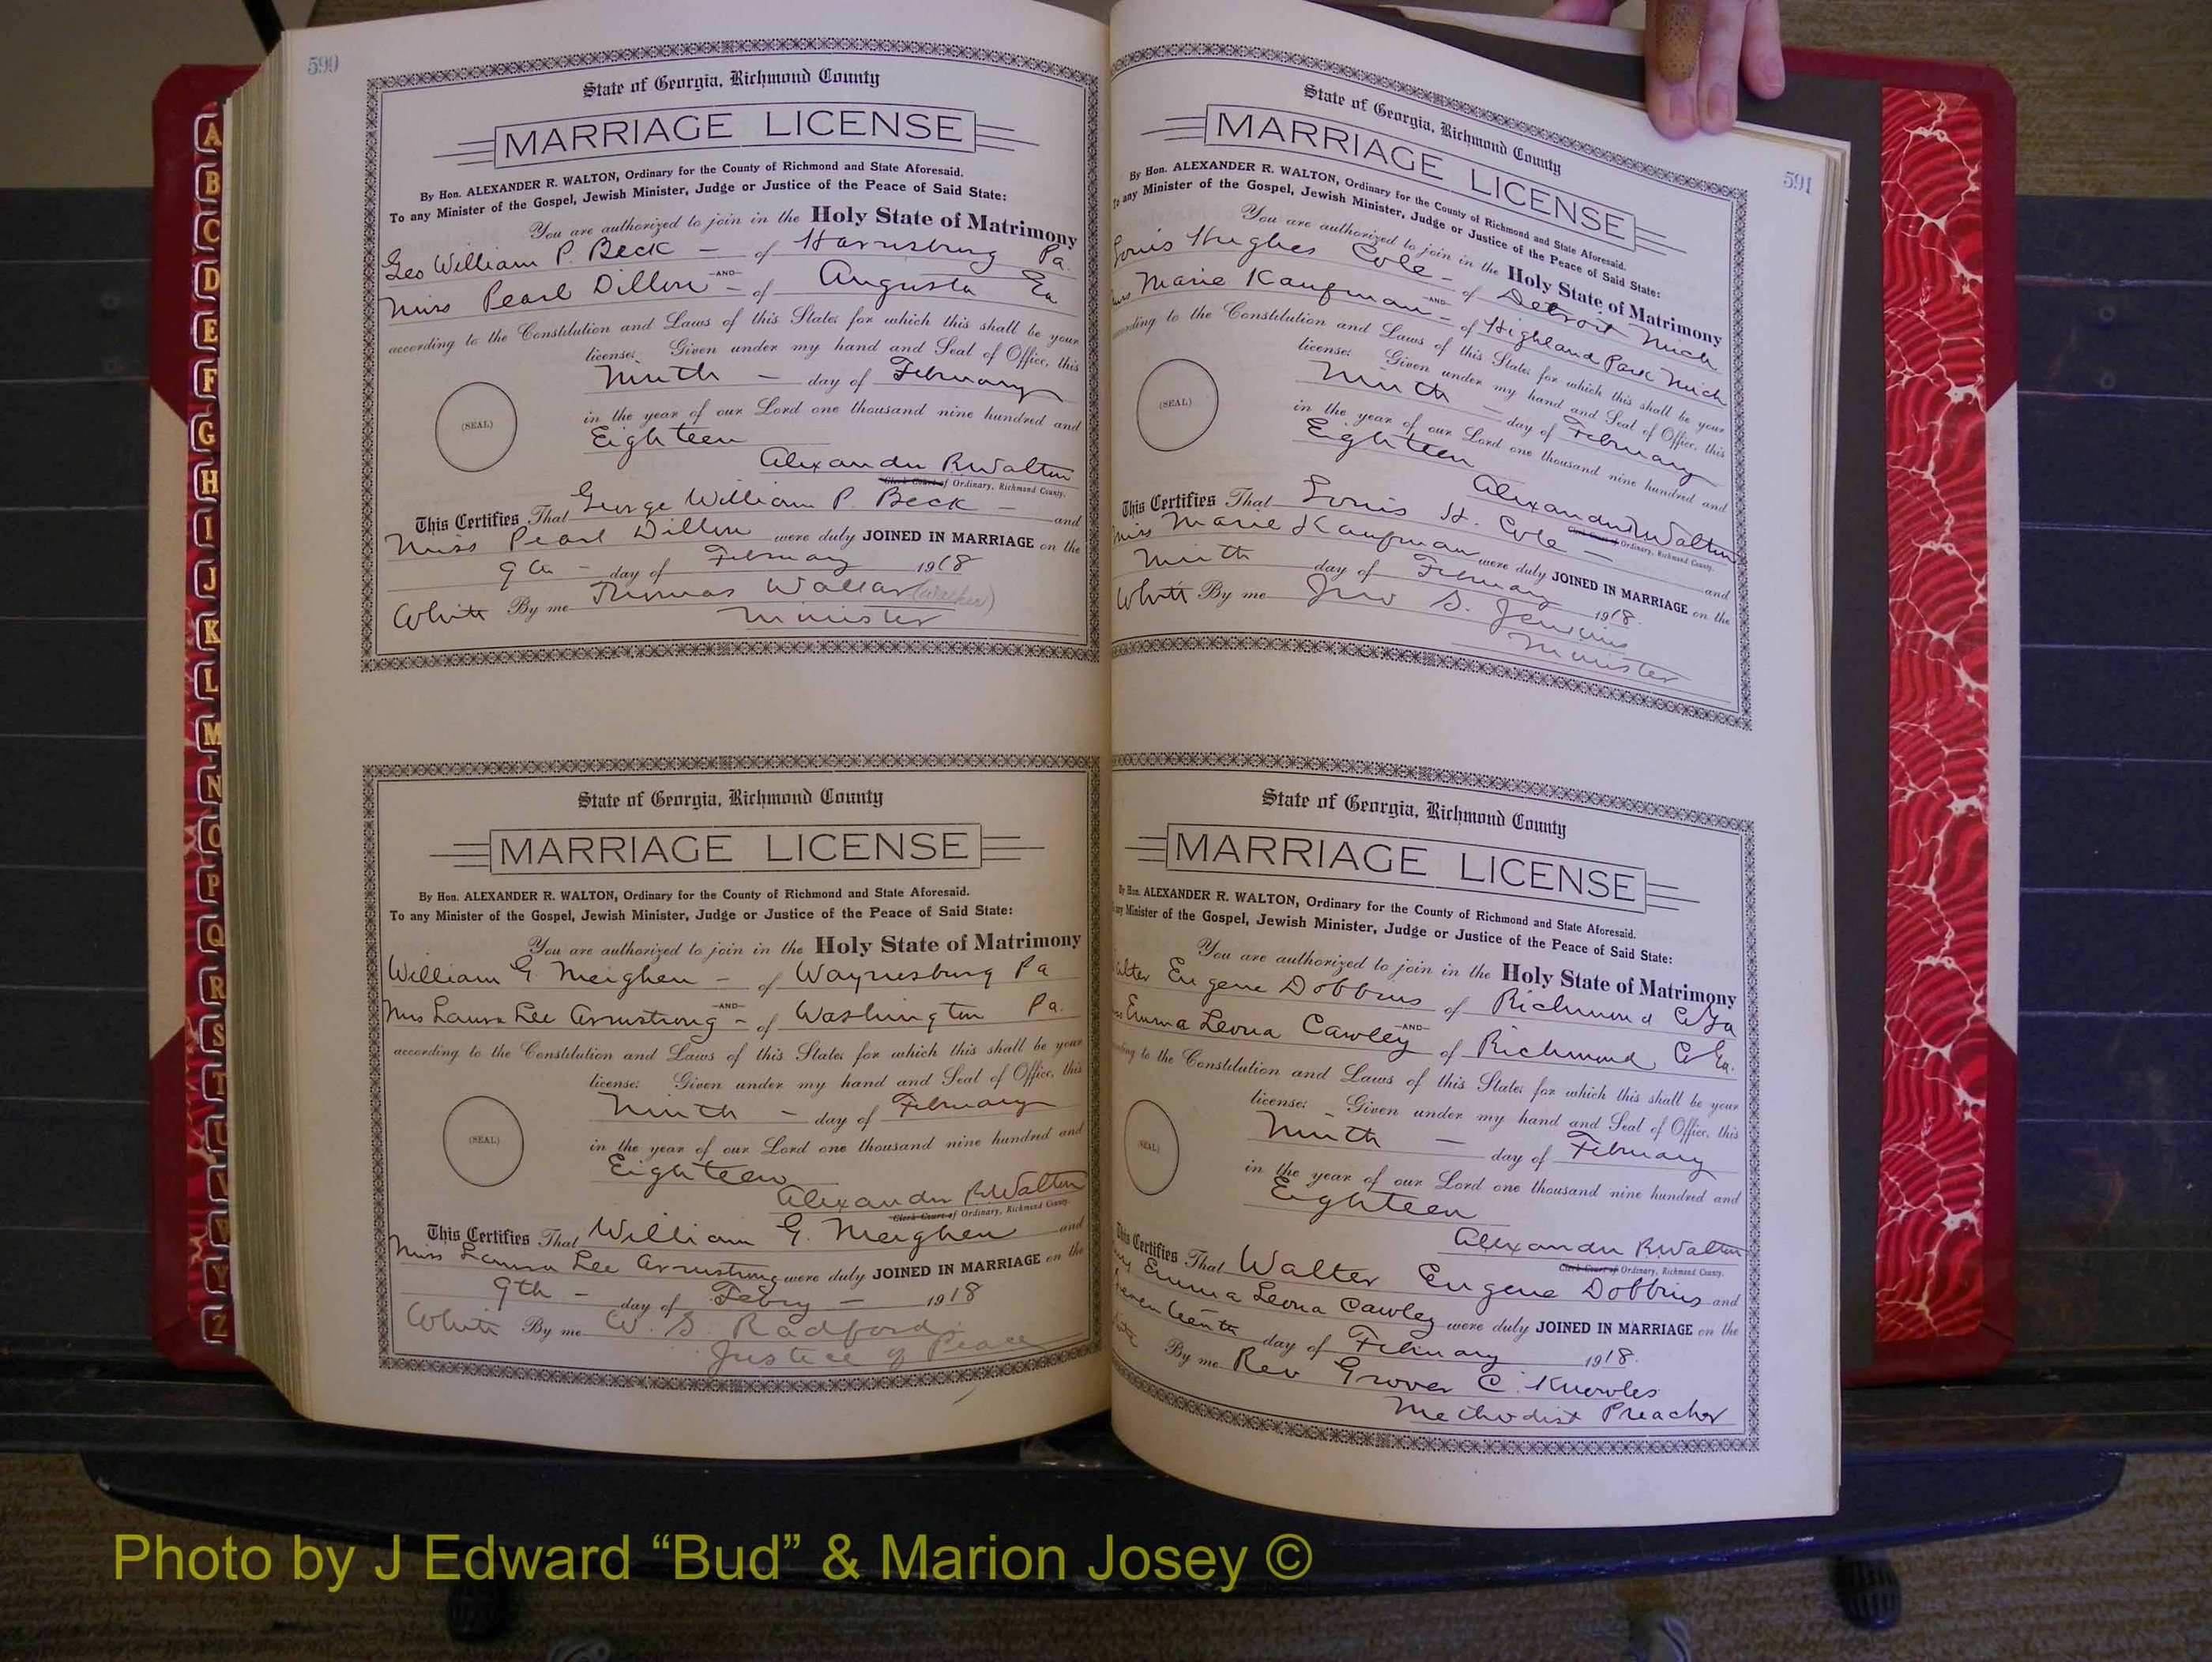 590
State of Georgia, Richmond County
MARRIAGE LICENSE
By Hon. ALEXANDER R. WALTON, Ordinary for the County of Richmond and State Aforesaid.
To any Minister of the Gospel, Jewish Minister, Judge or Justice of the Peace of Said State:
You are authorized to join in the Holy State of Matrimony
Geo William P. Beck - of Harrisburg Pa.
-AND-
Miss Pearl Dillon - of Augusta Ga
according to the Constitution and Laws of this State; for which this shall be your
license: Given under my hand and Seal of Office, this
Ninth - day of February
(SEAL)
in the year of our Lord one thousand nine hundred and
Eighteen
Alexander R Walton
Clerk Court of Ordinary, Richmond County.
This Certifies That George William P. Beck - and
Miss Pearl Dillon were duly JOINED IN MARRIAGE on the
9th - day of February 1918
White By me Thomas Walker (Walker)
Minister
State of Georgia, Richmond County
MARRIAGE LICENSE
By Hon. ALEXANDER R. WALTON, Ordinary for the County of Richmond and State Aforesaid.
To any Minister of the Gospel, Jewish Minister, Judge or Justice of the Peace of Said State:
You are authorized to join in the Holy State of Matrimony
William G. Meighen - of Waynesburg Pa
-AND-
Miss Laura Lee Armstrong - of Washington Pa.
according to the Constitution and Laws of this State; for which this shall be your
license: Given under my hand and Seal of Office, this
Ninth - day of February
(SEAL)
in the year of our Lord one thousand nine hundred and
Eighteen
Alexander R Walton
Clerk Court of Ordinary, Richmond County.
This Certifies That William G. Meighen and
Miss Laura Lee Armstrong were duly JOINED IN MARRIAGE on the
9th - day of Febry - 1918
White By me W. S. Radford
Justice of Peace
591
State of Georgia, Richmond County
MARRIAGE LICENSE
By Hon. ALEXANDER R. WALTON, Ordinary for the County of Richmond and State Aforesaid.
To any Minister of the Gospel, Jewish Minister, Judge or Justice of the Peace of Said State:
You are authorized to join in the Holy State of Matrimony
Louis Hughes Cole - of Detroit Mich
-AND-
Marie Kaufman - of Highland Park Mich
according to the Constitution and Laws of this State; for which this shall be your
license: Given under my hand and Seal of Office, this
Ninth - day of February
(SEAL)
in the year of our Lord one thousand nine hundred and
Eighteen
Alexander R Walton
Clerk Court of Ordinary, Richmond County.
This Certifies That Louis H. Cole - and
Miss Marie Kaufman were duly JOINED IN MARRIAGE on the
Ninth day of February 1918.
White By me Jno S. Jenkins
Minister
State of Georgia, Richmond County
MARRIAGE LICENSE
By Hon. ALEXANDER R. WALTON, Ordinary for the County of Richmond and State Aforesaid.
any Minister of the Gospel, Jewish Minister, Judge or Justice of the Peace of Said State:
You are authorized to join in the Holy State of Matrimony
Walter Eugene Dobbins of Richmond Co Ga
-AND-
Emma Leona Cawley of Richmond Co Ga.
according to the Constitution and Laws of this State; for which this shall be your
license: Given under my hand and Seal of Office, this
Ninth - day of February
(SEAL)
in the year of our Lord one thousand nine hundred and
Eighteen
Alexander R Walton
Clerk Court of Ordinary, Richmond County.
This Certifies That Walter Eugene Dobbins and
Emma Leona Cawley were duly JOINED IN MARRIAGE on the
Seventeenth day of February 1918.
White By me Rev Grover C. Knowles
Methodist Preacher
A
B
C
D
E
F
G
H
I
J
K
L
M
N
O
P
Q
R
S
T
U
V
W
Y
Z
Photo by J Edward “Bud” & Marion Josey ©